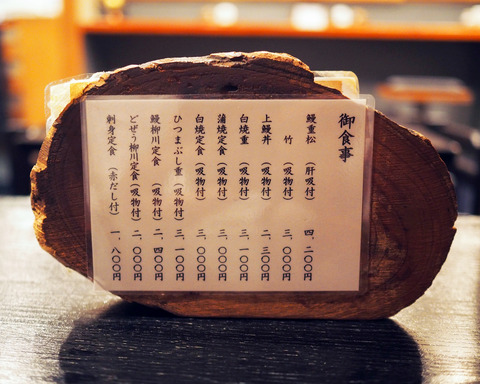 御食事
鰻重松 (肝吸付) 四、二〇〇円
竹 (吸物付) 三、〇〇〇円
上鰻丼 (吸物付) 二、三〇〇円
白焼重 (吸物付) 三、一〇〇円
蒲焼定食 (吸物付) 三、〇〇〇円
白焼定食 (吸物付) 三、〇〇〇円
ひつまぶし重 (吸物付) 三、一〇〇円
鰻柳川定食 (吸物付) 二、四〇〇円
どぜう柳川定食 (吸物付) 二、〇〇〇円
刺身定食 (赤だし付) 一、八〇〇円